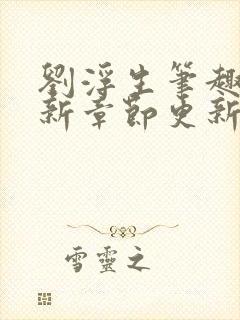 劉浮生筆趣
新章節更新
雪靈之